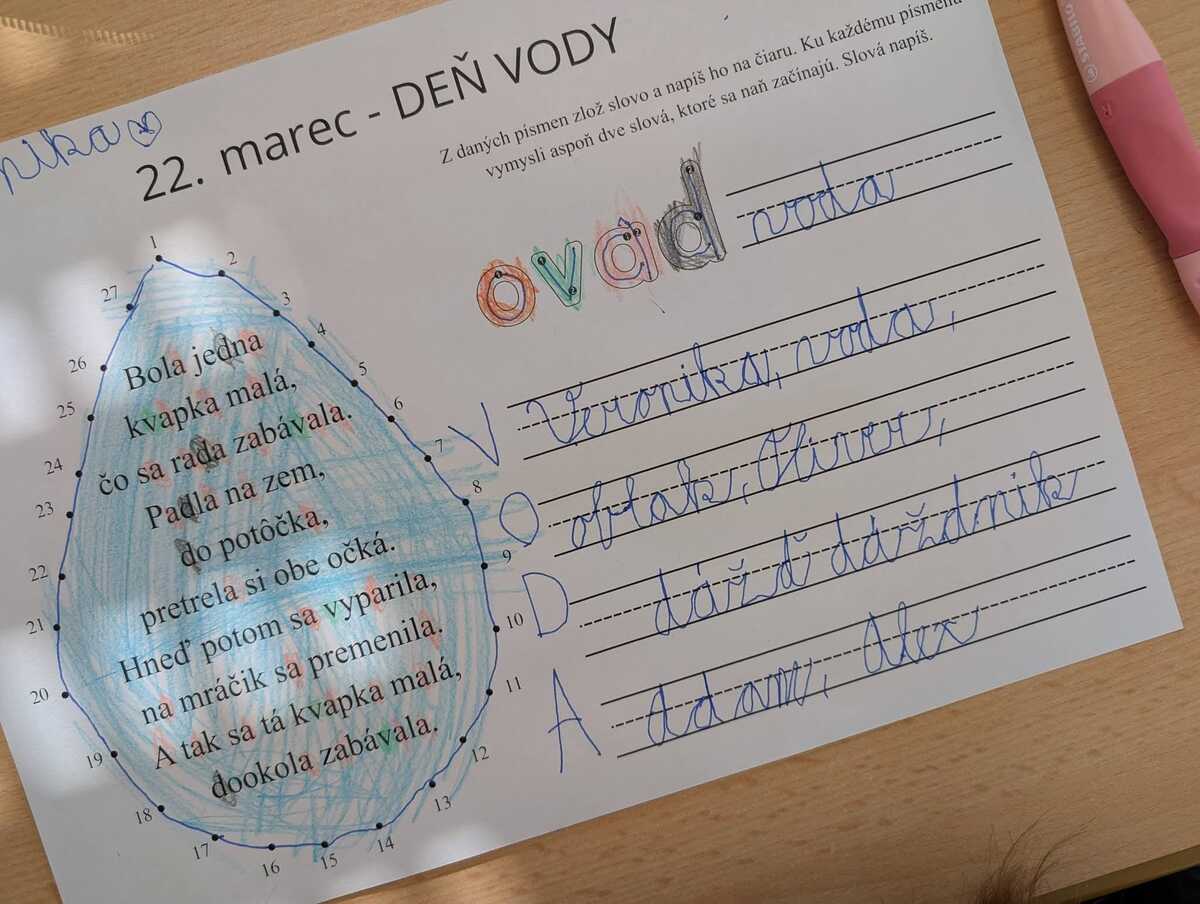 nika
22. marec - DEŇ VODY
Z daných písmen zlož slovo a napíš ho na čiaru. Ku každému písmenu
vymysli aspoň dve slová, ktoré sa naň začínajú. Slová napíš.
ovad
voda
Bola jedna
kvapka malá,
čo sa rada zabávala.
Padla na zem,
do potôčka,
pretrela si obe očká.
Hneď potom sa vyparila,
na mráčik sa premenila.
A tak sa tá kvapka malá,
dookola zabávala.
1
2
3
4
5
6
7
8
9
10
11
12
13
14
15
16
17
18
19
20
21
22
23
24
25
26
27
V Veronika, voda,
O oblak, Oliver,
D dážď dáždnik
A adam, Alex
STABILO